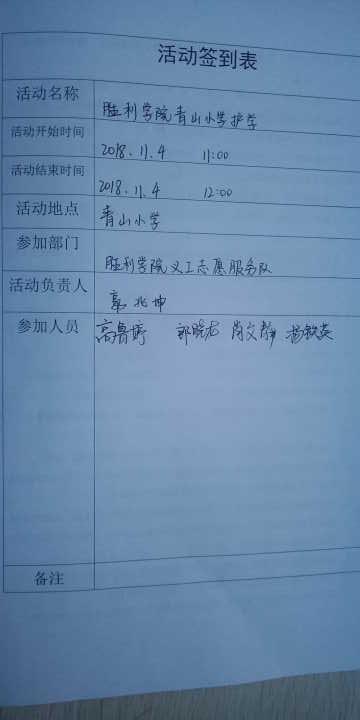 活动签到表
活动名称 胜利学院青山小学护学
活动开始时间 2018.11.4 11:00
活动结束时间 2018.11.4 12:00
活动地点 青山小学
参加部门 胜利学院义工志愿服务队
活动负责人 郭兆坤
参加人员 高鲁婷 郭晓 肖文静 杨
备注